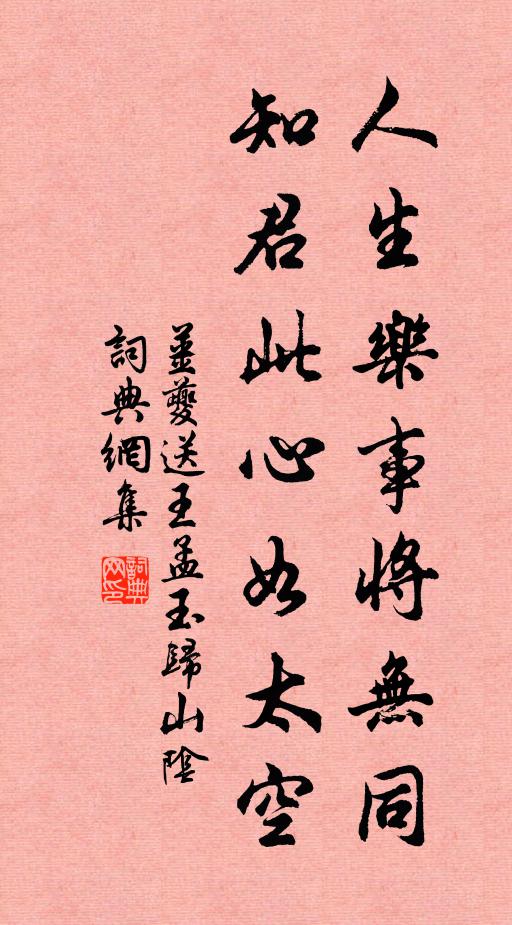 人生樂事將無同
知君此心如太空
姜夔送王孟玉歸山陰
詞典網集
詞典網印